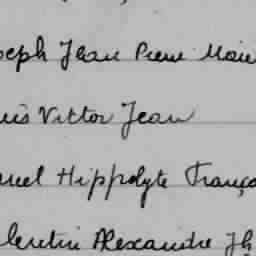 oseph Jean Pierre Marie
uis Victor Jean
nuel Hippolyte França
lentin Alexandre Jh